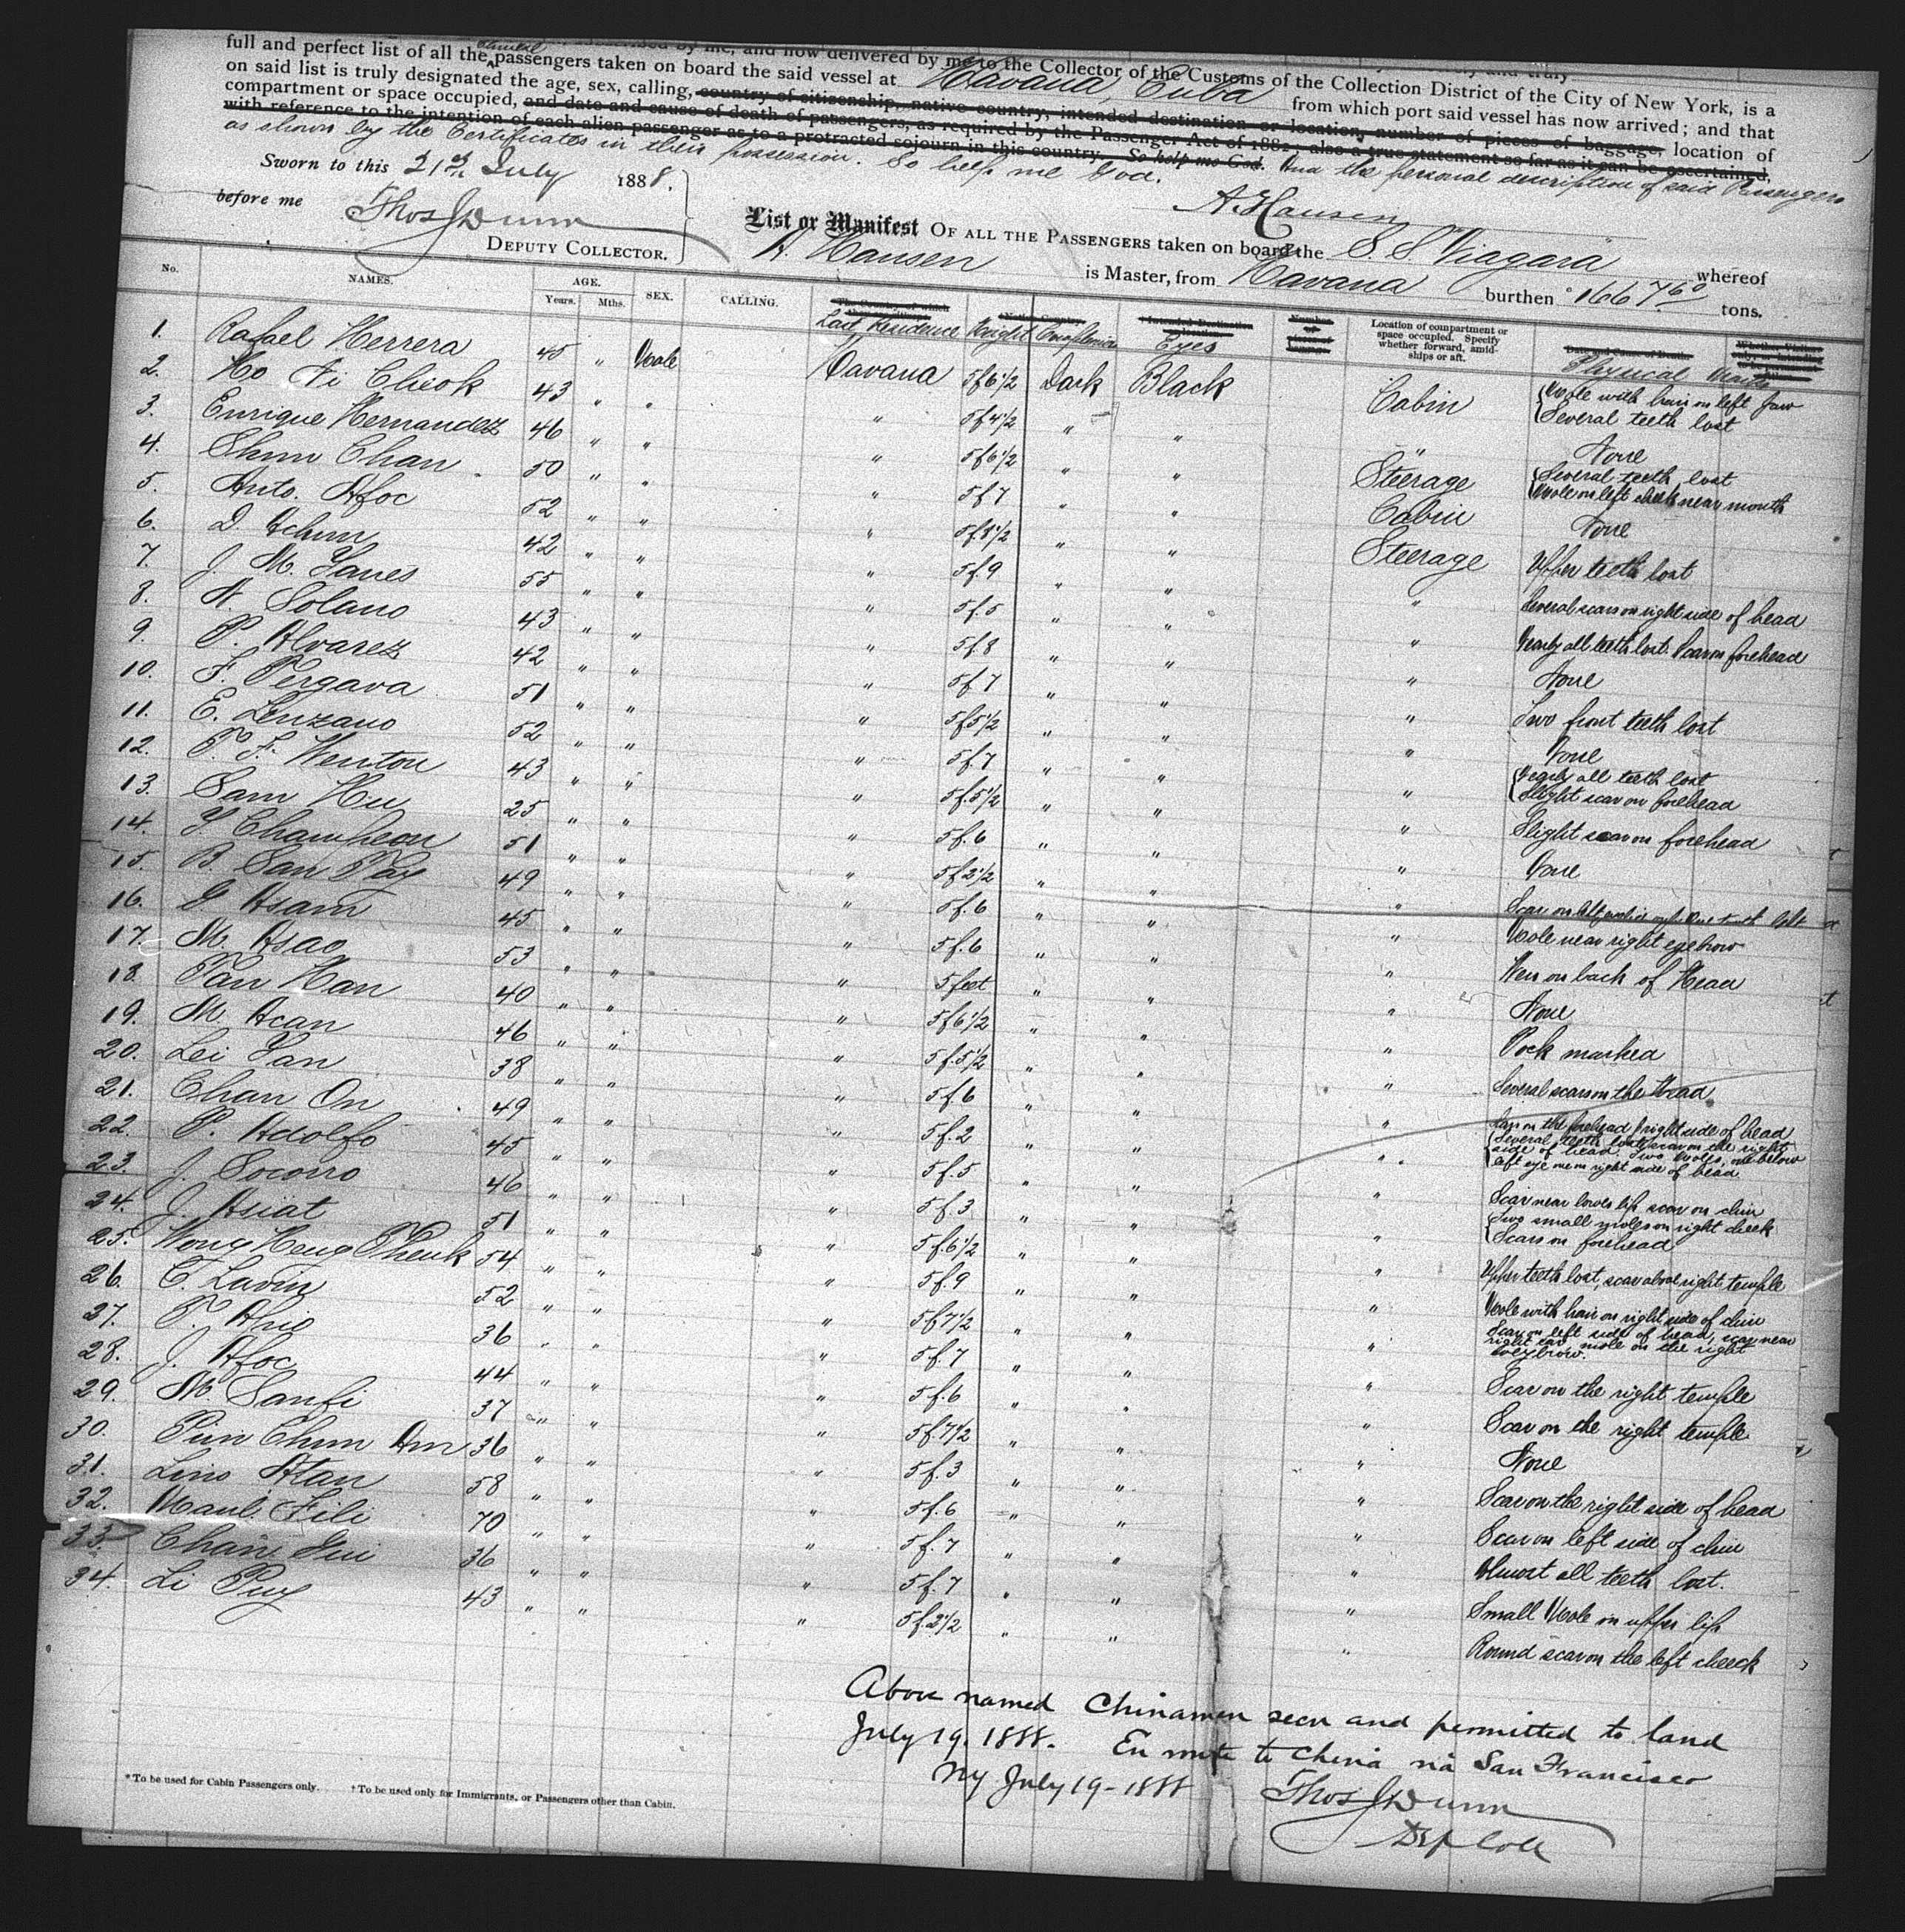 full and perfect list of all the Chinese passengers taken on board the said vessel at Havana, Cuba from which port said vessel has now arrived; and that
by me, and now delivered by me to the Collector of the Customs of the Collection District of the City of New York, is a
on said list is truly designated the age, sex, calling, country of citizenship, native country, intended destination or location, number of pieces of baggage, location of
compartment or space occupied, and date and cause of death of passengers, as required by the Passenger Act of 1882; also a true statement so far as it can be ascertained,
with reference to the intention of each alien passenger as to a protracted sojourn in this country. So help me God. And the personal description of said Passengers
as shown by the Certificates in their possession. So help me God.
Sworn to this 21st July 1888.
A. Hansen
before me Thos J Dunn
DEPUTY COLLECTOR.
List or Manifest OF ALL THE PASSENGERS taken on board the S. S Niagara whereof
A. Hansen is Master, from Havana burthen 1667 60 tons.
No. NAMES. AGE. Years. Mths. SEX. CALLING. Last Residence Height Complexion Eyes Location of compartment or space occupied. Specify whether forward, amidships or aft. Physical Marks
1. Rafael Herrera 45 " Male Havana 5f6½ Dark Black Cabin Mole with hair on left jaw Several teeth lost
2. Ho Fi Cheok 43 " " " 5f4½ " " " None
3. Enrique Hernandez 46 " " " 5f6½ " " Steerage Several teeth lost Mole on left cheek near mouth
4. Shun Chan 50 " " " 5f7 " " Cabin None
5. Anto. Afoc 52 " " " 5f8½ " " Steerage Upper teeth lost
6. D. Achun 42 " " " 5f9 " " " Several scars on right side of head
7. J. M. Yanes 55 " " " 5f.5 " " " Nearly all teeth lost. Scar on forehead
8. A. Solano 43 " " " 5f8 " " " None
9. P. Alvarez 42 " " " 5f7 " " " Two front teeth lost
10. F. Pergava 51 " " " 5f5½ " " " None
11. E. Lenzano 52 " " " 5f.7 " " " Nearly all teeth lost Slight scar on forehead
12. P. F. Wenton 43 " " " 5f.5½ " " " Slight scar on forehead
13. Sam Hu 25 " " " 5f.6 " " " None
14. Y. Chawheon 51 " " " 5f2½ " " "
15. B. San Pay 49 " " " 5f.6 " " " Mole near right eyebrow
16. G Asam 45 " " " 5f.6 " " " Wen on back of Head
17. M. Asao 53 " " " 5 feet " " " None
18. Pan Han 40 " " " 5f6½ " " " Pock marked
19. M. Acan 46 " " " 5f.5½ " " " Several scars on the Head
20. Lei Yan 38 " " " 5f.6 " " " Scars on the forehead & right side of head
21. Chan On 49 " " " 5f.2 " " " Several teeth lost, scar on the right side of head. Two moles, one below left eye one on right side of head
22. P. Adolfo 45 " " " 5f.5 " " " Scar near lower lip scar on chin
23. J. Socorro 46 " " " 5f.3 " " " Two small moles on right cheek Scars on forehead
24. J. Asiat 51 " " " 5f.6½ " " " Upper teeth lost, scar above right temple
25. Wong Heng Pheuk 54 " " " 5f.9 " " " Mole with hair on right side of chin
26. C. Lavin 52 " " " 5f7½ " " " Scar on left side of head, scar near right ear mole on the right eyebrow.
27. T. Ahio 36 " " " 5f.7 " " " Scar on the right temple
28. J. Afoc 44 " " " 5f.6 " " " Scar on the right temple
29. M Sanfi 37 " " " 5f7½ " " " None
30. Pun Chun Am 36 " " " 5f.3 " " " Scar on the right side of head
31. Lino Atan 58 " " " 5f.6 " " " Scar on left side of chin
32. Manl. Fili 70 " " " 5f.7 " " " Almost all teeth lost.
33. Chan Gui 36 " " " 5f.7 " " " Small Mole on upper lip
34. Li Puy 43 " " " 5f.2½ " " " Round scar on the left cheek
Above named Chinamen seen and permitted to land
July 19, 1888. En route to China via San Francisco
NY July 19-1888 Thos J Dunn
Dep Coll
*To be used for Cabin Passengers only. †To be used only for Immigrants, or Passengers other than Cabin.